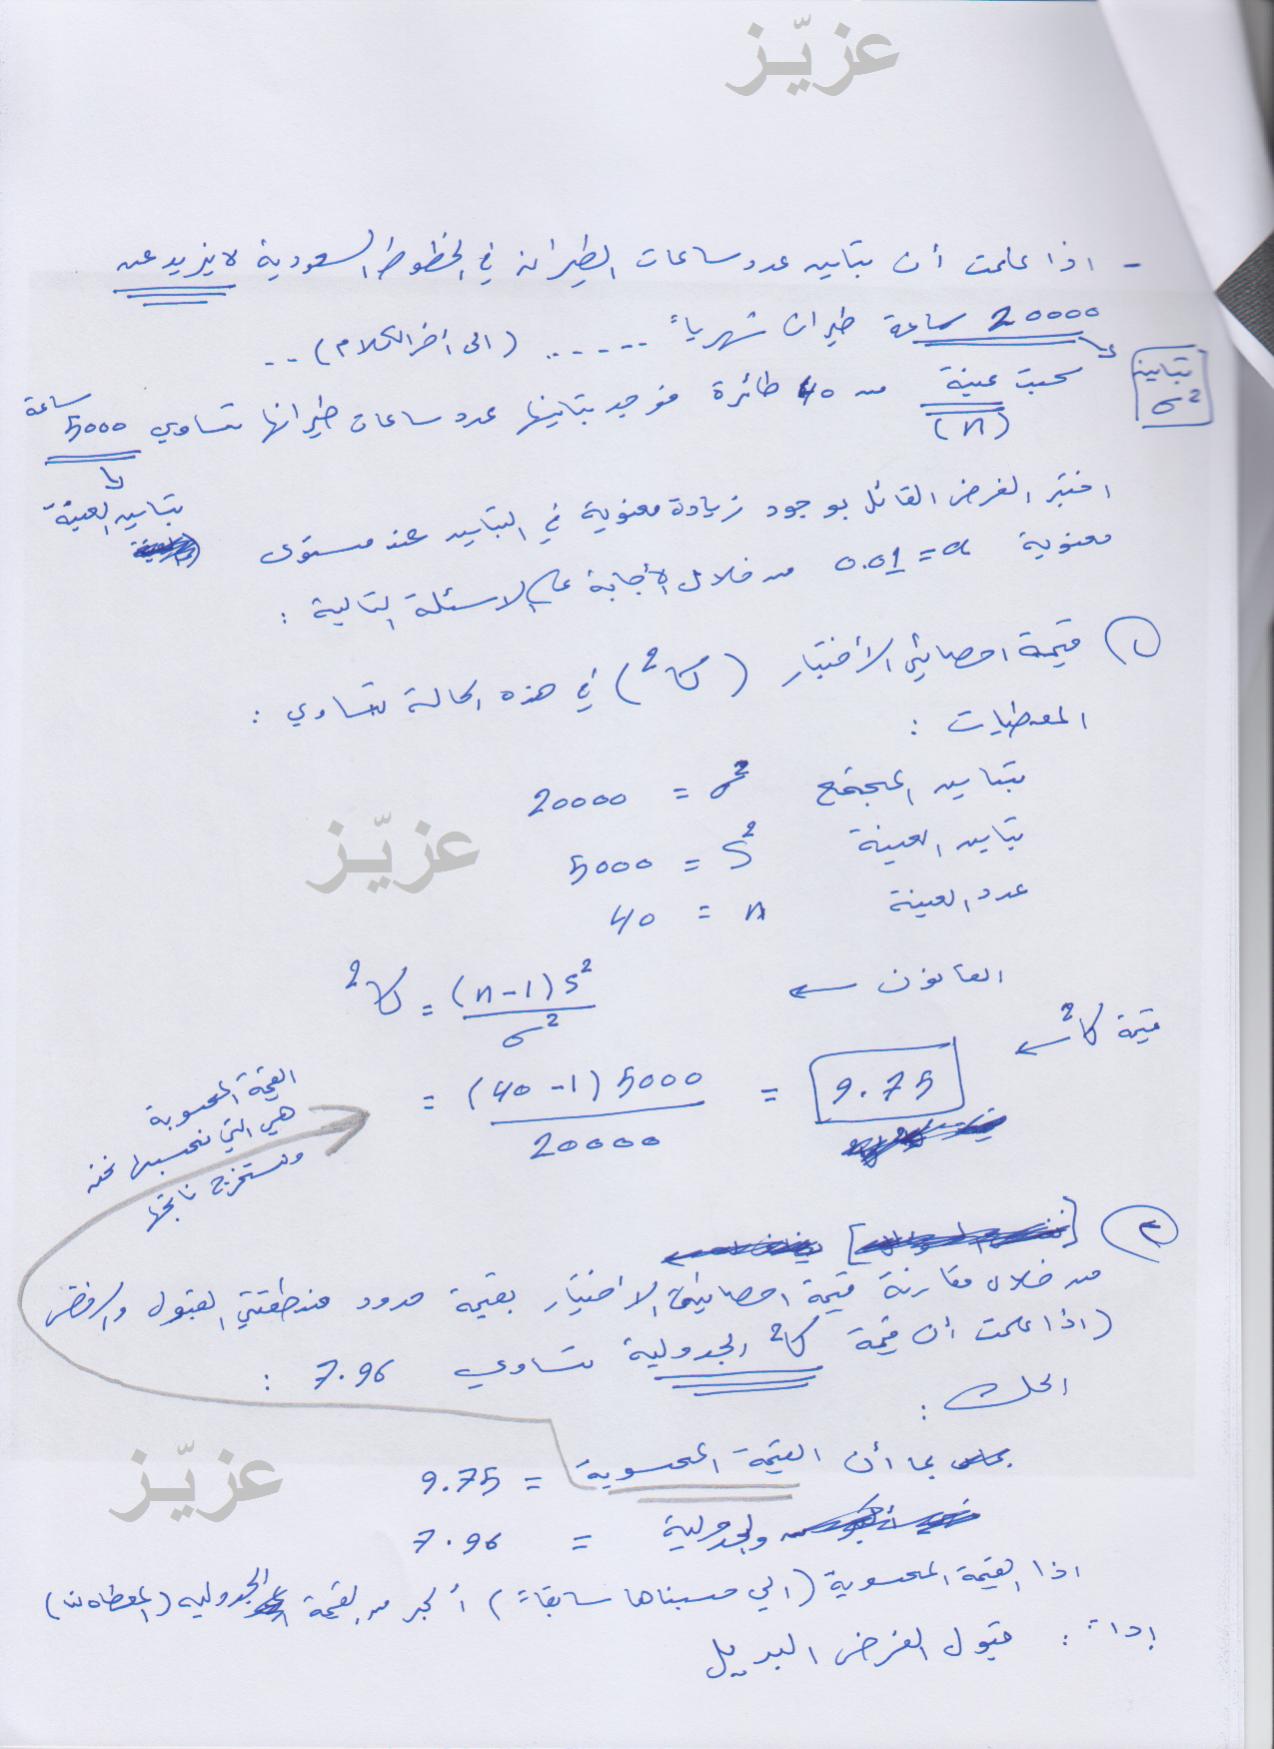 عزيّز
- اذا علمت أن تباين عدد ساعات الطيران في الخطوط السعودية لا يزيد عن
20000 ساعة طيران شهرياً ...... (الى أخر الكلام) ..
تباين
σ²
سحبت عينة من 40 طائرة فوجد تباينها عدد ساعات طيرانها تساوي 5000 ساعة
(n)
تباين العينة
اختبر الفرض القائل بوجود زيادة معنوية في التباين عند مستوى
معنوية α = 0.01 من خلال الأجابة على الاسئلة التالية :
١) قيمة احصائي الأختبار (كا2) في هذه الحالة تساوي :
المعطيات :
تباين المجتمع σ² = 20000
تباين العينة S² = 5000
عدد العينة n = 40
عزيّز
القانون ← كا2 = (n-1) S² / σ²
قيمة كا2 ← = (40-1) 5000 / 20000 = 9.75
القيمة المحسوبة
هي التي نحسبها نحن
ونستخرج ناتجها
٢)
من خلال مقارنة قيمة احصائية الاختبار بقيمة حدود منطقتي القبول والرفض
(اذا علمت أن قيمة كا2 الجدولية تساوي 7.96 :
الحل :
بما أن القيمة المحسوبة = 9.75
عزيّز
والجدولية = 7.96
اذا القيمة المحسوبة (الي حسبناها سابقاً) أكبر من القيمة الجدوليه (المعطاه لنا)
إذاً : قبول الفرض البديل